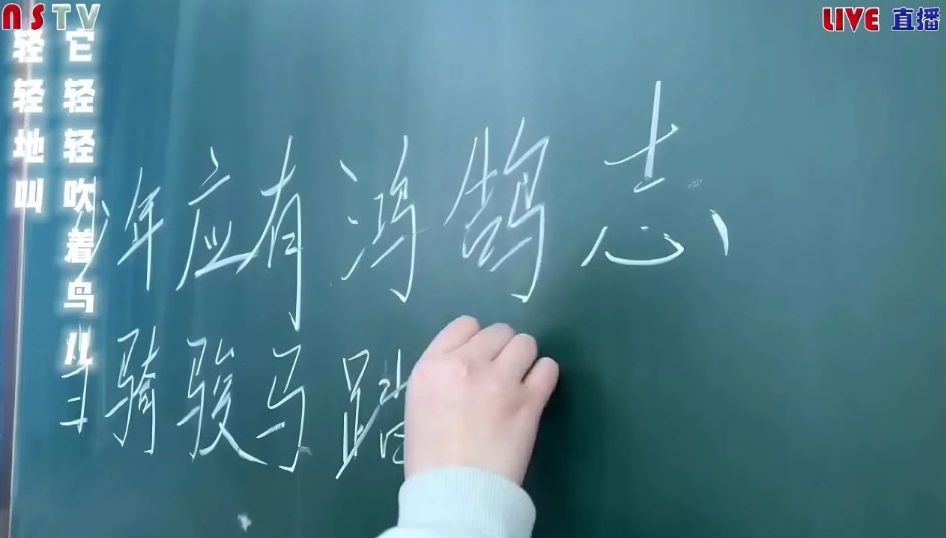 NSTV
LIVE 直播
它轻轻吹着鸟儿
轻轻地叫
少年应有鸿鹄志
骑骏马踏